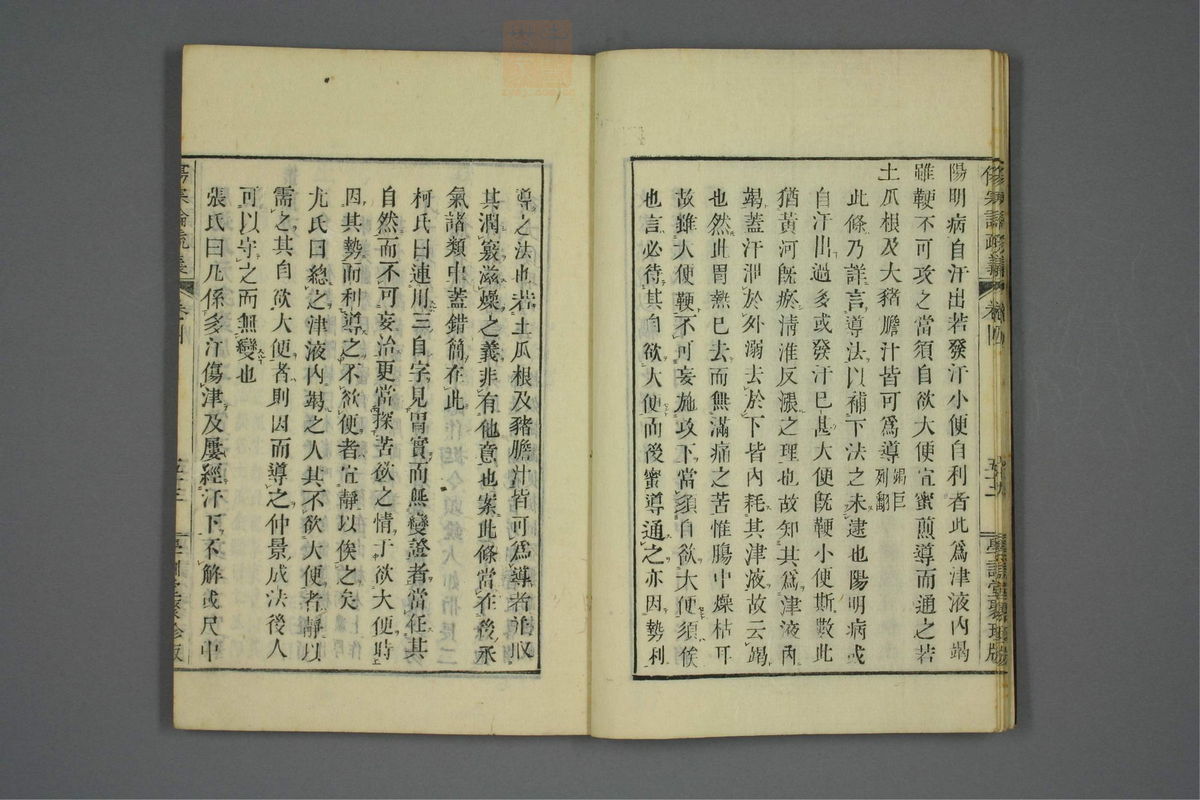 陽明病自汗出若發汗小便自利者此爲津液內竭
雖鞕不可攻之當須自欲大便宜蜜煎導而通之若
土瓜根及大豬膽汁皆可爲導
此條乃詳言導法以補下法之未逮也陽明病或
自汗出過多或發汗已甚大便旣鞕小便斯數此
猶黃河旣瘀淸淮反漲之理也故知其爲津液內
竭蓋汗泄於外溺去於下皆內耗其津液故云竭
也然此胃熱已去而無滿痛之苦惟腸中燥枯耳
故雖大便鞕不可妄施攻下當須自欲大便須候
也言必待其自欲大便而後蜜導通之亦因勢利
導之法也若土瓜根及豬膽汁皆可爲導者非取
其潤竅滋燥之義非有他意也案此條當在後承
氣諸類中蓋錯簡在此
柯氏曰連用三自字見胃實而無變證者當任其
自然而不可妄治更當探苦欲之情于欲大便時
因其勢而利導之不欲便者宜靜以俟之矣
尤氏曰總之津液內竭之人其不欲大便者靜以
需之其自欲大便者則因而導之仲景成法後人
可以守之而無變也
張氏曰凡係多汗傷津及屢經汗下不解或尺中